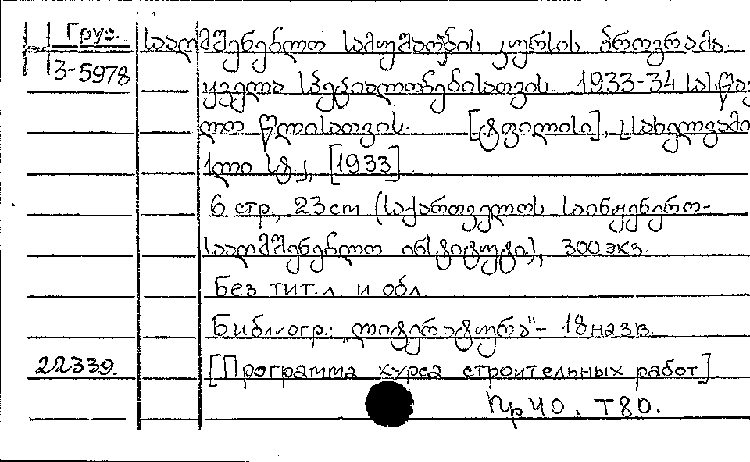 Груз.
3-5978
სააღმშენებლო სამუშაოების კურსის პროგრამა.
ყველა სპეციალობებისათვის 1933-34 სასწავ
ლო წლისათვის. [ტფილისი], სახელგამი
1ლი სტ., [1933]
6 стр., 23 cm (საქართველოს საინჟენერო-
სააღმშენებლო ინსტიტუტი), 300 экз.
Без тит. л. и обл.
Библиогр.: „ლიტერატურა“ - 18 назв.
22339. [Программа курса строительных работ]
Пр 40. Т80.